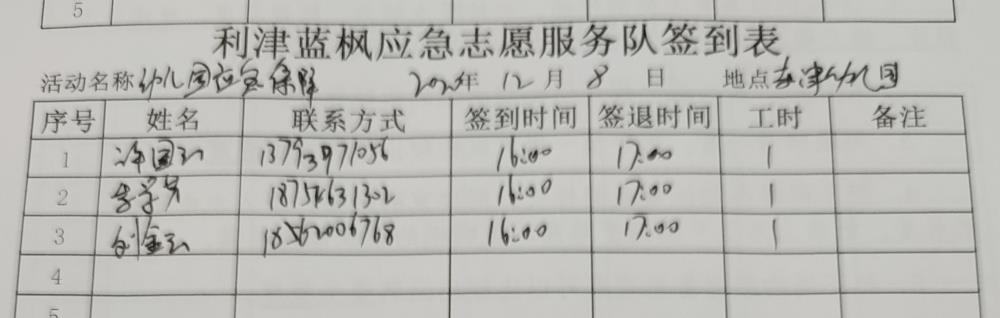 5
利津蓝枫应急志愿服务队签到表
活动名称 幼儿园应急保障 年 12 月 8 日 地点 幼儿园
序号 姓名 联系方式 签到时间 签退时间 工时 备注
1 13793971056 16:00 17:00 1
2 李学芳 18754631302 16:00 17:00 1
3 刘金云 18562006768 16:00 17:00 1
4
5